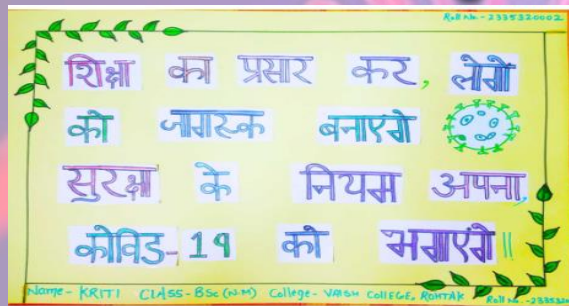 Roll No - 2335320002
शिक्षा का प्रसार कर, लोगो
को जागरूक बनाएंगे
सुरक्षा के नियम अपना,
कोविड-19 को भगाएंगे॥
Name - KRITI CLASS - BSc (N.M) College - VAISH COLLEGE, ROHTAK Roll No. - 233532